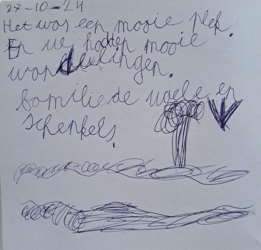 27-10-24
Het was een mooie plek.
En we hadden mooie
wandelingen.
familie de
en
schenkels.